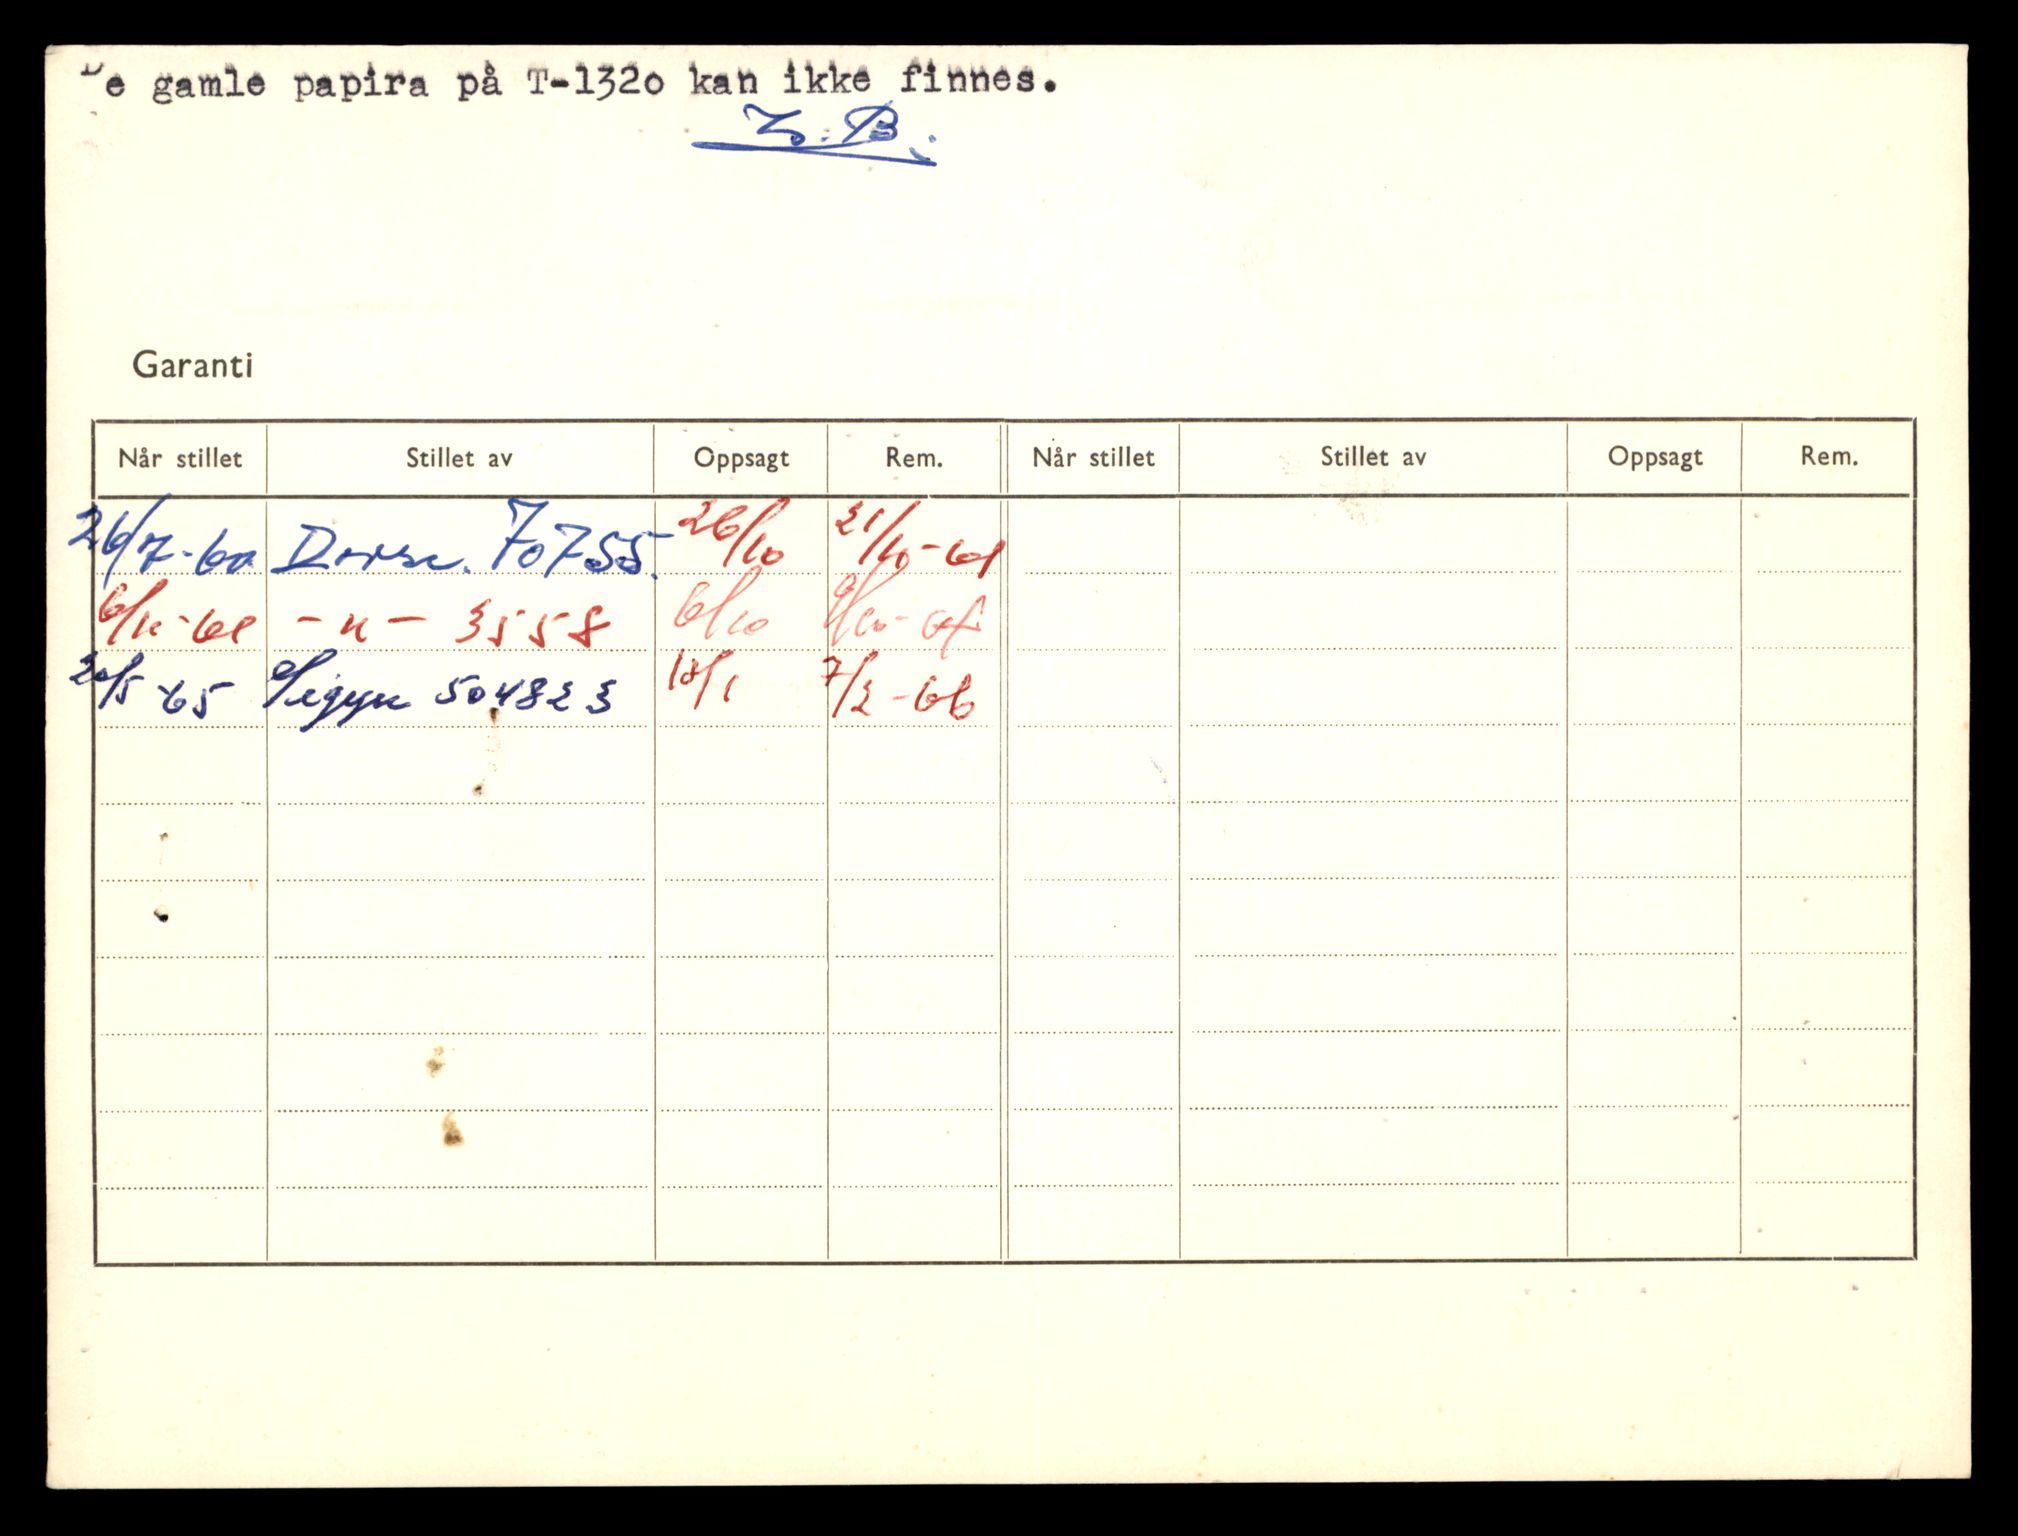 De gamle papira på T-1320 kan ikke finnes.
Garanti
Når stillet Stillet av Oppsagt Rem. Når stillet Stillet av Oppsagt Rem.
26/7-60 70755. 26/10 21/10-61
6/11-61 -"- 3558 6/10 9/10-64
20/5-65 Sigyn 504823 18/1 7/2-66